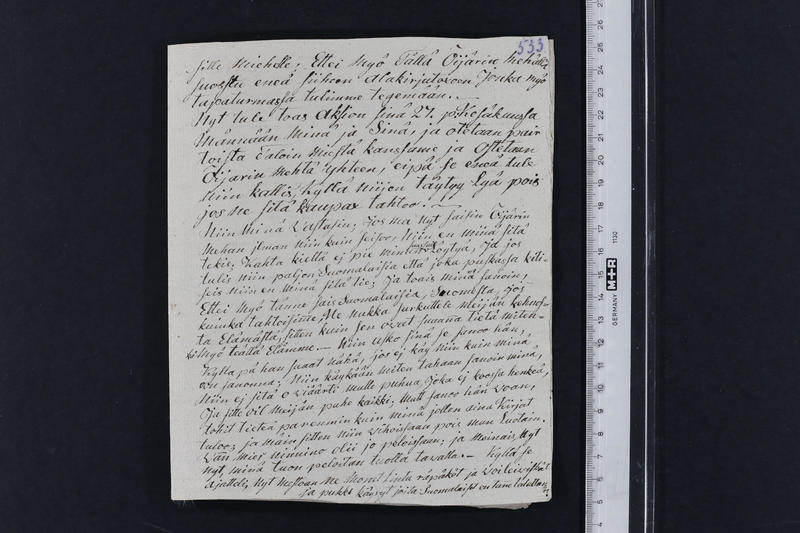 533
sitte Miehelle; Ettei Myö Tällä Öijärin Mehällä
suostu eneä siiheen alakirjutoxeen Jonka Myö
tapaturmassa tulimme tegemään.
Nyt tule taas Aksion sinä 27. p: Kesäkuussa
Männään Minä ja Sinä, ja otetaan pair
toista Taloin Miestä kanssame ja Ostetaan
Öijärin Mehtä Yhteen, eipä se eneä tule
niin kallis, kyllä niijen täytyy Lyä pois
jos ne sitä kaupax tahtoo.
Niin Minä Vastasin; Jos Ma Nyt saisin Öijärin
Mehan ilman niin kuin seisoo, Niin en Minä sitä
tekis; Kahta kieltä ej pie minun suussan Löytyä, Ja jos
tulis niin paljon Suomalaisia että joka puskassa kili-
seis niin en Minä sitä tie; Ja toais Minä sanoin,
Ettei Myö tänne sais Suomalaisia, Suomesta, Jos
kuinka tahtoisima, Ne nukka surkuttele Meijän kehnos-
ta Elämästä, sitten kuin son ovat suana tietä miten-
kä Myö teällä Elämme. — Niin usko sinä se sanoo hän,
Kylla pä han suaat nähä, jos ej käy niin kuin minä
oon sanonna; Niin käykään miten tahaan sanoin minä,
Niin ej sitä o väärti Mulle puhua, Joka ej koossa henkeä,
Ja sitte oil Meijän puhe kaikki; Mutt sanoo hän voan,
tohit tieteä paremmin kuin minä jollen aina Kirjat
tuloo; ja Mäin sitten niin vihoissaan pois mun Luotain.
Vän Mies nimmino olii jo peloissaan; ja Meinais, Nyt
Nyt, minä tuon peloitan tuolla tavalla. — Kyllä se
Ajatteli, Nyt Mostoan Me Monet Linlu räpäköt ja Voileiviskät
ja pukki käyryt joita Suomalaiset en tune tahattan